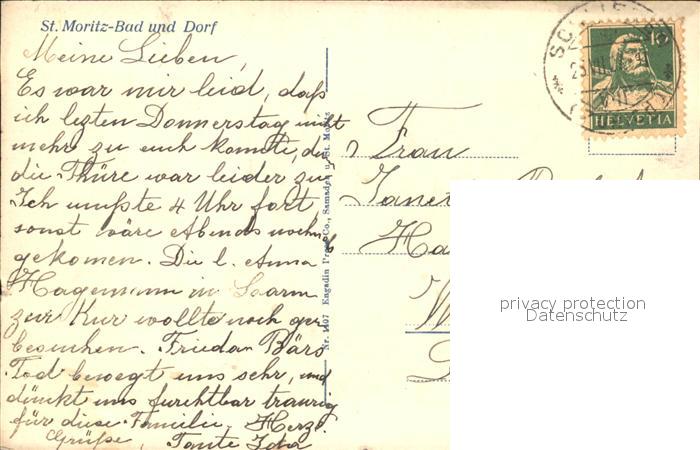 St. Moritz-Bad und Dorf
Meine Lieben,
Es war mir leid, daß
ich lezten Donnerstag nicht
mehr zu euch konnte, da
die Thüre war leider zu
Ich mußte 4 Uhr fort
sonst wäre Abends
gekomen. Die l. Anna
Hagemann in
zur Kur wollte noch
besuchen. Friedan Bärs
Tod bewegt uns sehr, und
dünkt uns furchtbar traurig
für diese Familie, Herzl.
Grüße, Tante Ida
Nr. 1407 Engadin Press Co., Samaden u. St. Moritz
HELVETIA
Frau
privacy protection
Datenschutz